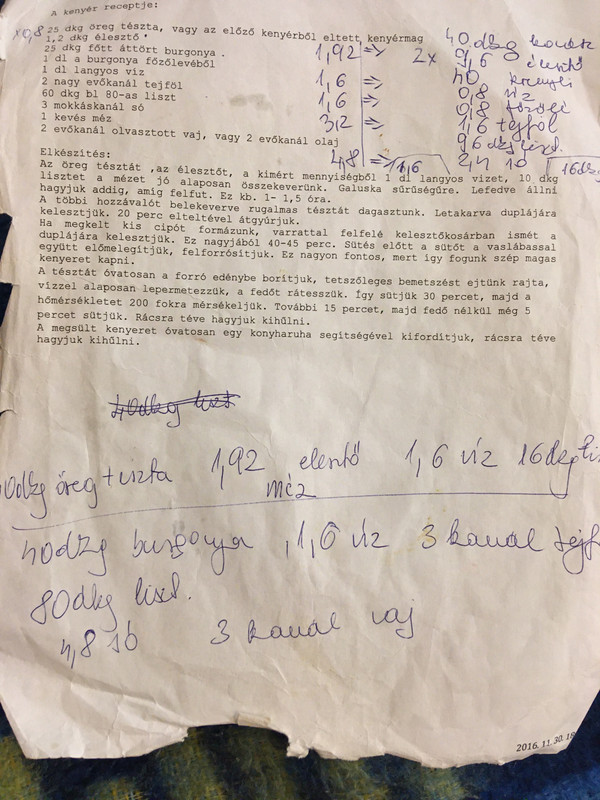 A kenyér receptje:
x0,8 25 dkg öreg tészta, vagy az előző kenyérből eltett kenyérmag
1,2 dkg élesztő
25 dkg főtt áttört burgonya
1 dl a burgonya főzőlevéből
1 dl langyos víz
2 nagy evőkanál tejföl
60 dkg bl 80-as liszt
3 mokkáskanál só
1 kevés méz
2 evőkanál olvasztott vaj, vagy 2 evőkanál olaj
1,92 =>
1,6 =>
1,6 =>
3,2 =>
4,8 => 1,6
40 dkg
2x 9,6 élesztő
40 krumpli
0,8 víz
0,8
1,6 tejföl
96 dkg liszt.
2,4 só
16dkg
Elkészítés:
Az öreg tésztát ,az élesztőt, a kimért mennyiségből 1 dl langyos vizet, 10 dkg
lisztet a mézet jó alaposan összekeverünk. Galuska sűrűségűre. Lefedve állni
hagyjuk addig, amíg felfut. Ez kb. 1- 1,5 óra.
A többi hozzávalót belekeverve rugalmas tésztát dagasztunk. Letakarva duplájára
kelesztjük. 20 perc elteltével átgyúrjuk.
Ha megkelt kis cipót formázunk, varrattal felfelé kelesztőkosárban ismét a
duplájára kelesztjük. Ez nagyjából 40-45 perc. Sütés előtt a sütőt a vaslábassal
együtt előmelegítjük, felforrósítjuk. Ez nagyon fontos, mert így fogunk szép magas
kenyeret kapni.
A tésztát óvatosan a forró edénybe borítjuk, tetszőleges bemetszést ejtünk rajta,
vízzel alaposan lepermetezzük, a fedőt rátesszük. Így sütjük 30 percet, majd a
hőmérsékletet 200 fokra mérsékeljük. További 15 percet, majd fedő nélkül még 5
percet sütjük. Rácsra téve hagyjuk kihűlni.
A megsült kenyeret óvatosan egy konyharuha segítségével kifordítjuk, rácsra téve
hagyjuk kihűlni.
40dkg liszt
40dkg öreg tészta 1,92 élesztő 1,6 víz 16dkg
méz
40dkg burgonya ,1,6 víz 3 kanál
80dkg liszt.
4,8 só 3 kanál vaj
2016.11.30.18